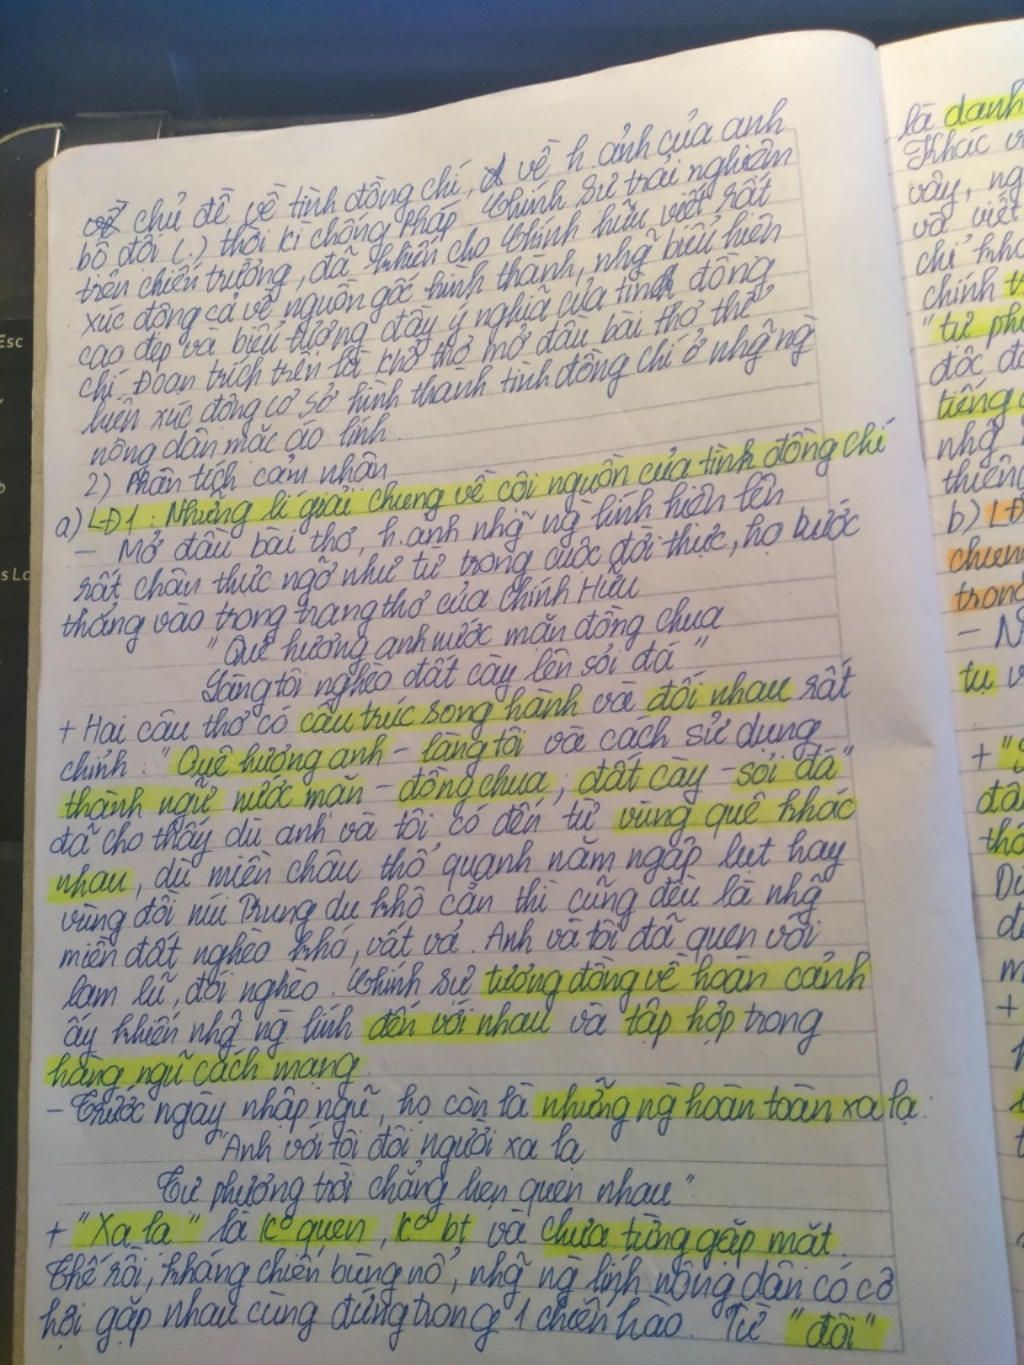 về chủ đề về tình đồng chí, về h.ảnh của anh
bộ đội (.) thời kì chống Pháp. Chính sự trải nghiệm
trên chiến trường, đã khiến cho Chính Hữu viết rất
xúc động cả về nguồn gốc hình thành, nhg~ biểu hiện
cao đẹp và biểu tượng đầy ý nghĩa của tình đồng
chí. Đoạn trích trên là khổ thơ mở đầu bài thơ thể
hiện xúc động cơ sở hình thành tình đồng chí ở nhg~ ng
nông dân mặc áo lính.
2) Phân tích cảm nhận
a) LĐ1: Những lí giải chung về cội nguồn của tình đồng chí
- Mở đầu bài thơ, h.anh nhg~ ng lính hiện lên
rất chân thực ngỡ như từ trong cuộc đời thực, họ bước
thẳng vào trong trang thơ của Chính Hữu
"Quê hương anh nước mặn đồng chua
Làng tôi nghèo đất cày lên sỏi đá"
+ Hai câu thơ có cấu trúc song hành và đối nhau rất
chỉnh: "Quê hương anh - làng tôi và cách sử dụng
thành ngữ nước mặn - đồng chua; đất cày - sỏi đá"
đã cho thấy dù anh và tôi có đến từ vùng quê khác
nhau, dù miền châu thổ quanh năm ngập lụt hay
vùng đồi núi Trung du khô cằn thì cũng đều là nhg~
miền đất nghèo khó, vất vả. Anh và tôi đã quen với
lam lũ, đói nghèo. Chính sự tương đồng về hoàn cảnh
ấy khiến nhg~ ng lính đến với nhau và tập hợp trong
hàng ngũ cách mạng.
- Trước ngày nhập ngũ, họ còn là những ng hoàn toàn xa lạ:
"Anh với tôi đôi người xa lạ
Tự phương trời chẳng hẹn quen nhau"
+ "Xa lạ" là k° quen, k° bt và chưa từng gặp mặt.
Thế rồi, kháng chiến bùng nổ, nhg~ ng lính nông dân có cơ
hội gặp nhau cùng đứng trong 1 chiến hào. Từ "đôi"
là danh
Khác v
vậy, ng
và viết
chỉ
chính
"tự ph
độc đ
tiếng
nhg~
thiêng
b) LĐ
chung
trong
- N
tụ v
+ "S
+
Esc